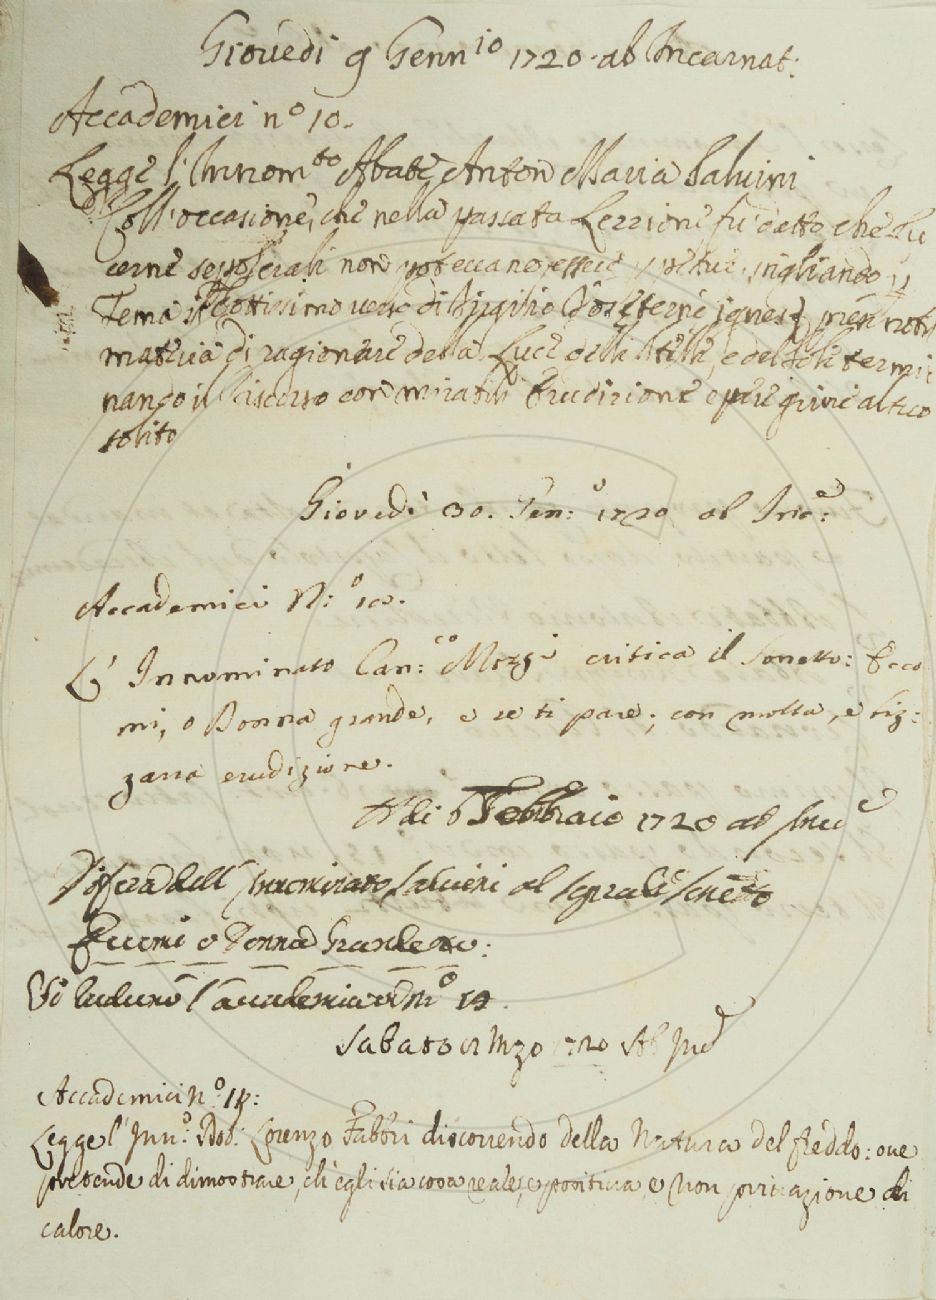 Giovedi 9 Genn.io 1720. ab Incarnat:
Accademici n.o 10.
Legge l'Innom.to Abate Anton Maria Salvini
Coll'occasione, che nella passata Lezzione fu detto che Lu
cerne sepolcrali non poteccano essere perpetue pigliando p
Tema il dottissimo verso di Virgilio Vos eterni ignes, prese nobil
materia di ragionare della Luce delle Stelle, e del Sole termi
nando il discorso con mirabil Erudizione e peregrine al suo
solito
Giovedì 30. Gen:o 1720 ab Inc.e:
Accademici N:o 10.
L'Innominato Can:co Mozzi critica il Sonetto: Ecco
mi, o Donna grande, e se ti pare; con molta, e biz:
zarra erudizione.
Adi 6 Febbraio 1720 ab Inc.e
Difesa dell'Innominato Salvini al sopradº Sonetto
Eccomi o Donna Grande etc:
Si radunò l'accademia in N.o 14.
Sabato Mzo 1720 Ab Inc
Accademici N.o 14:
Legge l'Inn.o Dod: Lorenzo Fabbri discorrendo della Natura del freddo: ove
pretende di dimostrare, ch'egli sia cosa reale, e positiva, e non privazione di
calore.